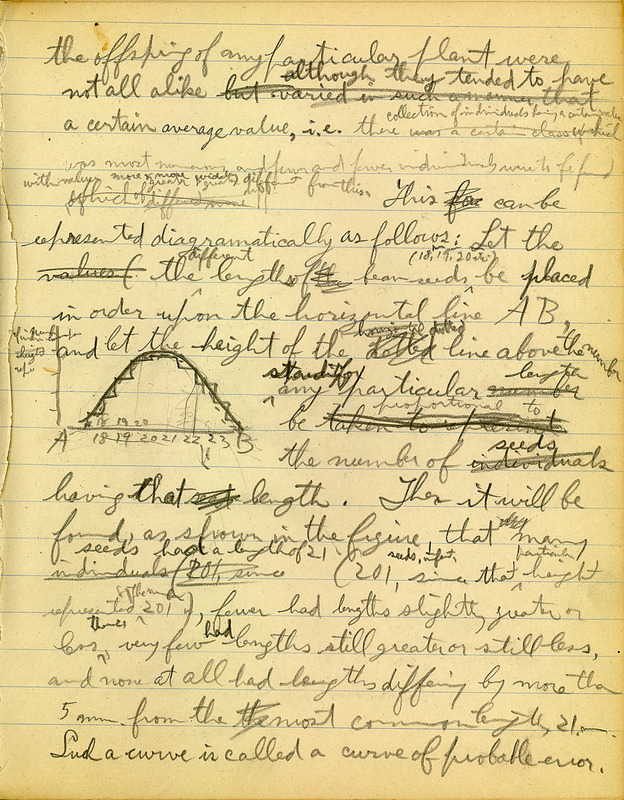 the offspring of any particular plant were
although they tended to have
not all alike but varied in such a manner that
collection of individuals having a certain value
a certain average value, i.e. there was a certain class of which
was most numerous and fewer and fewer individuals were to be found
with values more & more
greater, greater, different from this.
which differed more This can be
represented diagramatically as follows: Let the
different (18, 19, 20 etc)
values ( the lengths of bean seeds be placed
in order upon the horizontal line A B,
horizontal dotted
and let the height of the dotted line above the number
standing for length
any particular number
proportional to
be taken to represent
18 19 20
A 18 19 20 21 22 23 B
seeds
the number of individuals
having that length. Then it will be
found, as shown in the figure, that many
seeds had a length of 21 seeds, in fact, particular
individuals (201, since (201, since that height
represented 201 ), fewer had lengths slightly greater or
had
less, very few lengths still greater or still less,
and none at all had lengths differing by more than
5 mm. from the most common length, 21 mm.
Such a curve is called a curve of probable error.